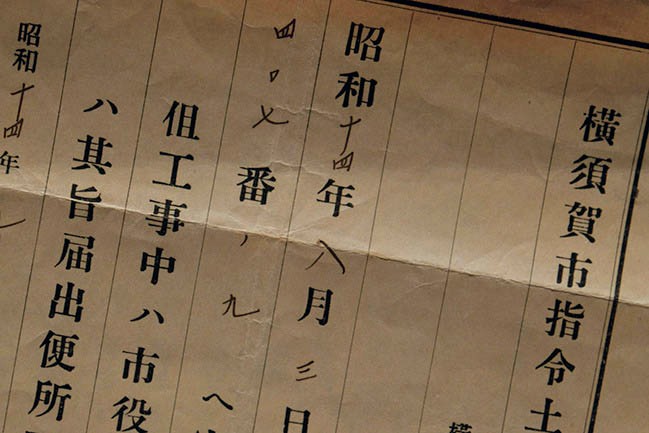 横須賀市指令土
横
昭和十四年八月三日
四〇七番ノ九
へ
但工事中ハ市役
ハ其旨届出便所
昭和十四年